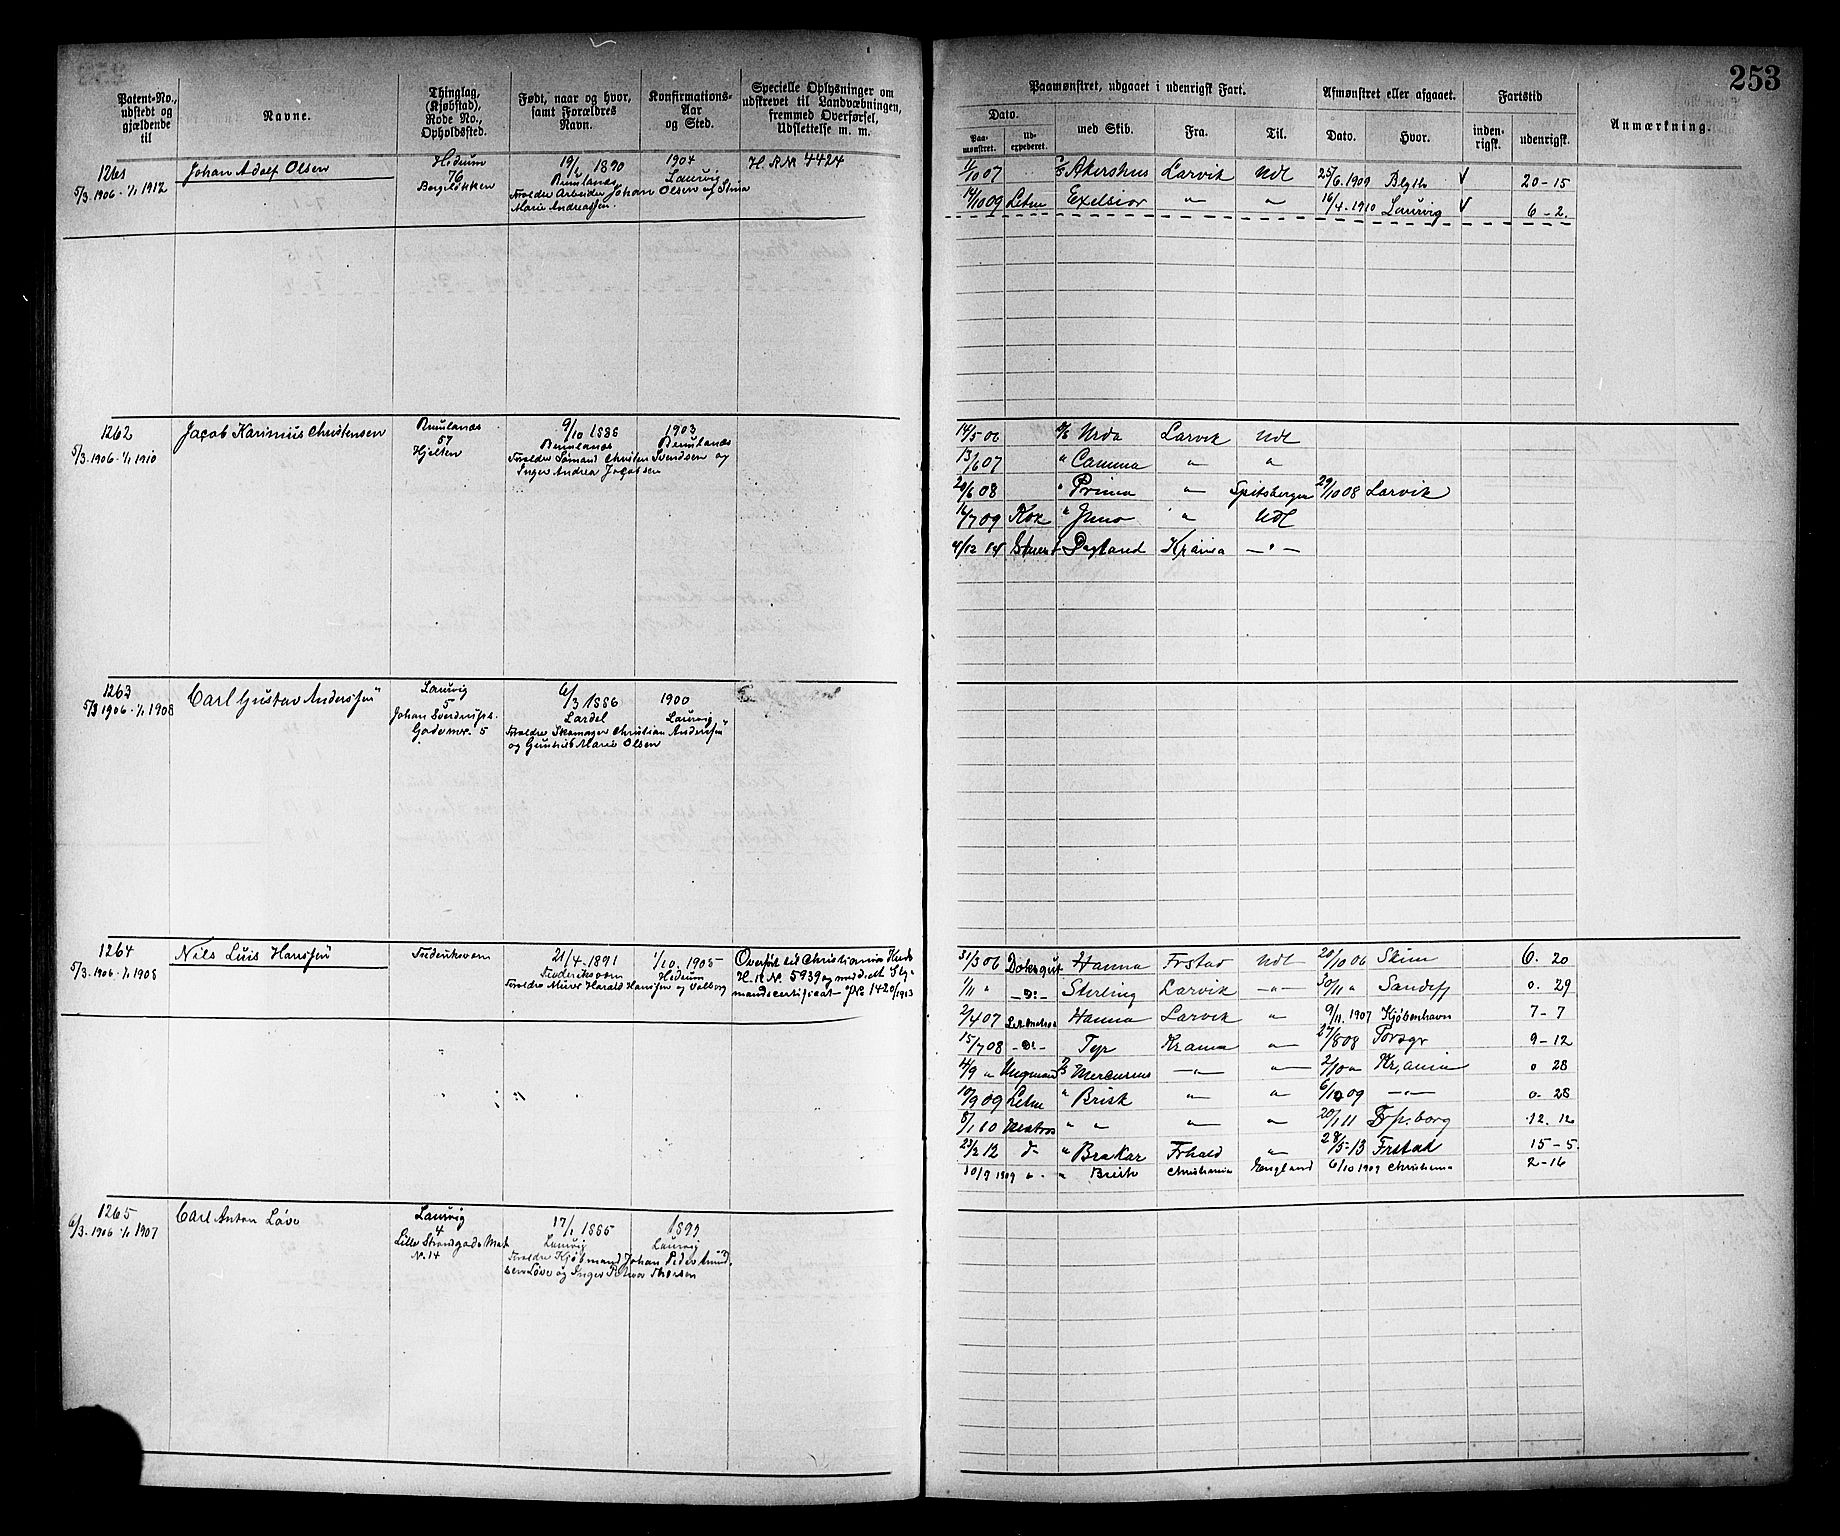 253
Patent-No., udstedt og gjældende til
Navne.
Thinglag, (Kjøbstad), Rode No., Opholdssted.
Født, naar og hvor, samt Forældres Navn.
Konfirmations-Aar og Sted.
Specielle Oplysninger om udskrevet til Landværnning, fremmed Overførsel, Udslettelse m. m.
Paamønstret, udgaaet i udenrigsk Fart.
Dato.
Paa-mønstret.
Ud-expederet.
med Skib.
Fra.
Til.
Afmønstret eller afgaaet.
Dato.
Hvor.
Fartstid
inden-rigsk.
udenrigsk.
Anmærkning.
1261
5/3 1906 - 1/1 1912
Johan Adolf Olsen
Hedrum
76
Bergeløkken
19/2 1890
Brunlanæs
Forældre Arbeider Johan Olsen og Stina
Marie Andreassen
1904
Laurvig
H. R. N° 4424
1/10 07 Akershus Larvik Udl 25/6. 1909 Blyth V 20-15
14/10 09 Letm Exelsior " " 16/4. 1910 Laurvig V 6-2.
1262
5/3 1906 - 1/1 1910
Jacob Karinius Christensen
Brunlanæs
57
Hjelten
9/10 1886
Brunlanæs
Forældre Sømand Christen Svendsen og
Inger Andrea Jacobsen
1903
Brunlanæs
14/5 06 Urda Larvik Udl
13/6 07 " Camma " "
20/6 08 " Prima " Spitsbergen 29/10 08 Larvik
16/7 09 Kok " Juno " Udl
4/12 14 Dagland Kr.ania — " —
1263
5/3 1906 - 1/1 1908
Carl Gustav Anderssen
Laurvig
5
Johan Sverdrups
Gade No. 5
6/3 1886
Lardal
Forældre Skomager Christian Anderssen
og Gunhild Marie Olsen
1900
Laurvig
1264
5/3 1906 - 1/1 1908
Nils Luis Hanssen
Frederiksværn
21/4 - 1891
Frederiksværn
Forældre Murer Harald Hanssen og Valborg
1/10. 1905
Hedrum
Overført til Christiania Kreds
H. R. N°. 5939 og meddelt Sty-
mandscertifikat — JNo 1420/1913
31/3 06 Dæksgut Hanna Frstad Udl 20/10 06 Skien 6. 20
1/11 " — D: — Stirling Larvik — " — 30/11 " Sandefj 0. 29
2/4 07 Let Matros Hanna Larvik " 9/11. 1907 Kjøbenhavn 7-7
15/7 08 — D: — Tyr Krania " 27/8 08 Porsgr 9-12
4/9 " Ungmand Mercurius — " — — " — 2/10 " Kr,ania 0 28
10/9 09 Letm " Brisk " " 6/10 09 — " — 0. 28
8/1 10 Matros " " " " 20/1 11 12. 12
23/2 12 d° " Brakar Frhald " 28/5-13 Frstad 15-5
10/9 1909 " " Brisk Christiania England 6/10 1909 Christiania 2-16
1265
6/3. 1906 - 1/1 1907
Carl Anton Løve
Laurvig
4
Lille Strandgade Mat
N. 14
17/1 1885
Laurvig
Forældre Kjøbmand Johan Peder Amund.
sen Løve og Inger Petrea Thorsen
1899
Laurvig